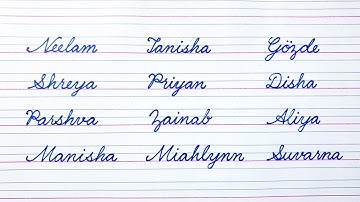 Neelam Tanisha Gözde
Shreya Priyan Disha
Parshva Zainab Aliya
Manisha Miahlynn Suvarna